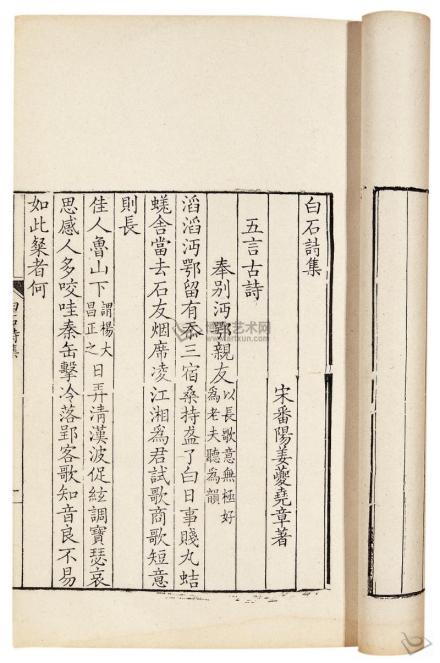 白石詩集
宋番陽姜夔堯章著
五言古詩
奉別沔鄂親友以長歌意無極好為老夫聽為韻
滔滔沔鄂留有忝三宿桑持盋了白日事賤丸蛣
蜣舍當去石友烟席凌江湘為君試歌商歌短意
則長
佳人魯山下謂楊大昌正之日弄清漢波促絃調寶瑟哀
思感人多咬哇秦缶擊冷落郢客歌知音良不易
如此粲者何
白石詩集